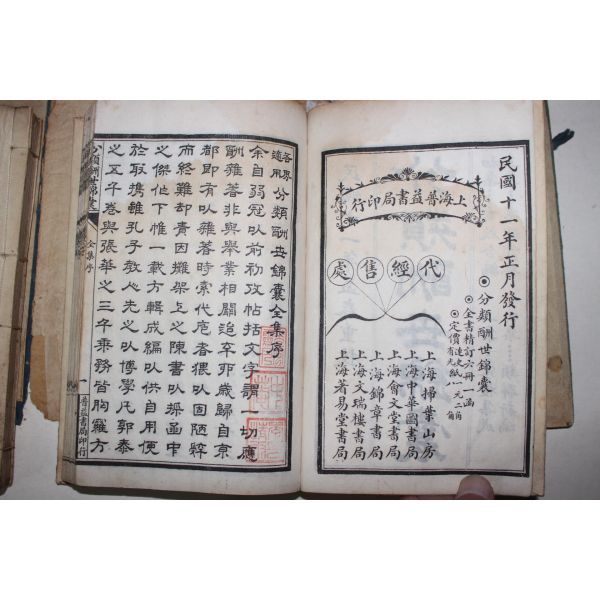 民國十一年正月發行
◉分類酬世錦囊
◉全書精訂六冊一函
◉定價 連史紙一元二角 有光紙八角
上海普益書局印行
代經售處
上海掃葉山房
上海中華圖書局
上海會文堂書局
上海錦章書局
上海文瑞樓書局
上海著易堂書局
各界適用分類酬世錦囊全集序
余自弱冠以前初攻帖括文字謂一切應
酬雜著非與舉業相關迨辛卯歲歸自京
都即有以雜著時索代庖者猥以固陋粹
而終難却責因摊架上之陳書以採函中
之傑作下惟一載方輯成編以供自用便
於取攜雖孔子教人先之以博學凡郭泰
之五千卷與張華之三十乘務皆胸羅方
分類酬世錦囊
全集序
一
普益書局印行